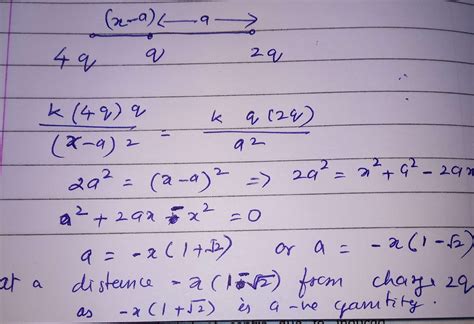 (x-a) <— a —>
4q q 2q
k(4q)q / (x-a)2 = k q(2q) / a²
2a² = (x-a)² => 2a² = x² + a² - 2ax
a² + 2ax - x² = 0
a = -x(1+√2) or a = -x(1-√2)
at a distance -x(1-√2) from charge 2q
as -x(1+√2) is a -ve quantity.